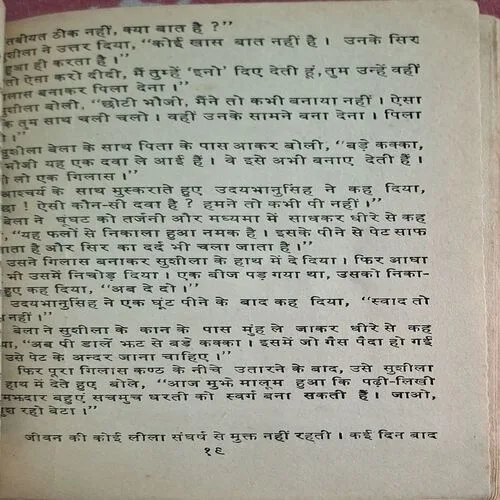 तबीयत ठीक नहीं, क्या बात है ?"
सुशीला ने उत्तर दिया, "कोई खास बात नहीं है । उनके सिर
हुआ ही करता है ।"
तो ऐसा करो दीदी, मैं तुम्हें 'इनो' दिए देती हूं, तुम उन्हें वहीं
लास बनाकर पिला देना ।"
सुशीला बोली, "छोटी भौजी, मैंने तो कभी बनाया नहीं । ऐसा
कि तुम साथ चली चलो । वहीं उनके सामने बना देना । पिला
।"
सुशीला बेला के साथ पिता के पास आकर बोली, "बड़े कक्का,
भौजी यह एक दवा ले आई हैं । वे इसे अभी बनाए देती हैं ।
लो एक गिलास ।"
आश्चर्य के साथ मुस्कराते हुए उदयभानुसिंह ने कह दिया,
! ऐसी कौन-सी दवा है ? हमने तो कभी पी नहीं ।"
बेला ने घूंघट को तर्जनी और मध्यमा में साधकर धीरे से कह
"यह फलों से निकाला हुआ नमक है । इसके पीने से पेट साफ
जाता है और सिर का दर्द भी चला जाता है ।"
उसने गिलास बनाकर सुशीला के हाथ में दे दिया । फिर आधा
भी उसमें निचोड़ दिया । एक बीज पड़ गया था, उसको निका-
हुए कह दिया, "अब दे दो ।"
उदयभानुसिंह ने एक घूंट पीने के बाद कह दिया, "स्वाद तो
नहीं ।"
बेला ने सुशीला के कान के पास मुंह ले जाकर धीरे से कह
"अब पी डालें झट से बड़े कक्का । इसमें जो गैस पैदा हो गई
उसे पेट के अन्दर जाना चाहिए ।"
फिर पूरा गिलास कण्ठ के नीचे उतारने के बाद, उसे सुशीला
हाथ में देते हुए बोले, "आज मुझे मालूम हुआ कि पढ़ी-लिखी
समझदार बहुएं सचमुच धरती को स्वर्ग बना सकती हैं । जाओ,
खुश रहो बेटा ।"
जीवन की कोई लीला संघर्ष से मुक्त नहीं रहती । कई दिन बाद
१९